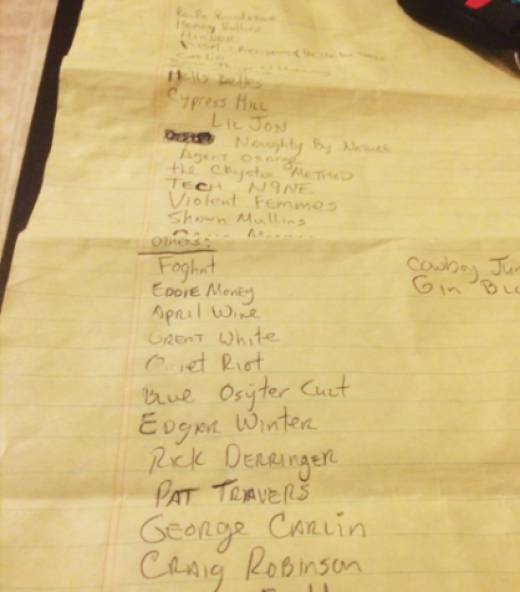 Henry Rollins
HINDER
Hells Belles
Cypress Hill
LIL JON
Naughty By Nature
Agent Orange
the Chrystal METHOD
TECH N9NE
Violent Femmes
Shawn Mullins
Others:
Foghat
EDDIE Money
April Wine
GREAT White
Quiet Riot
Blue Osÿter Cult
EDGAR Winter
RICK DERRINGER
PAT TRAVERS
GEORGE CARLIN
CRAIG ROBINSON
Cowboy
Gin